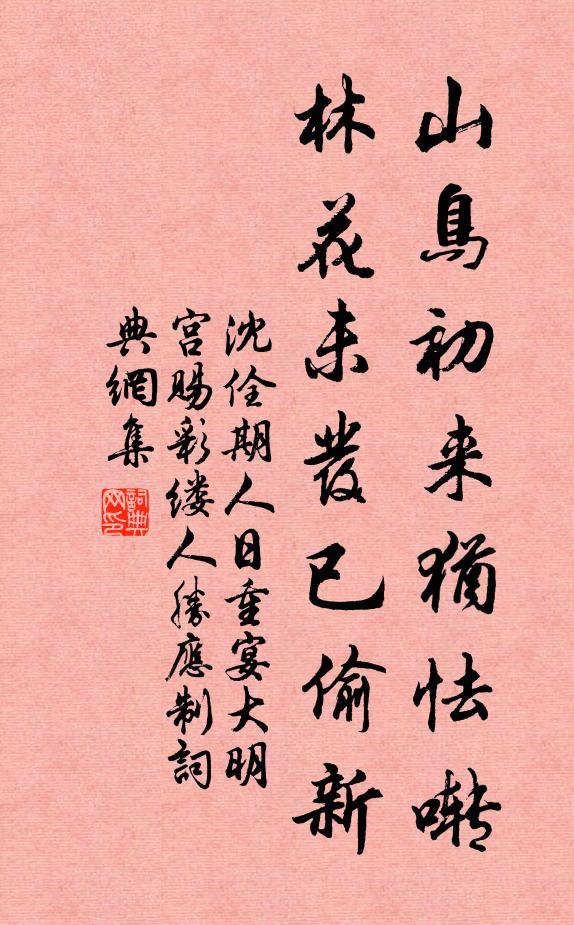 山鳥初来猶怯囀
林花未發已偷新
沈佺期人日重宴大明
宮賜彩缕人勝應制詞
典網集
詞典网印